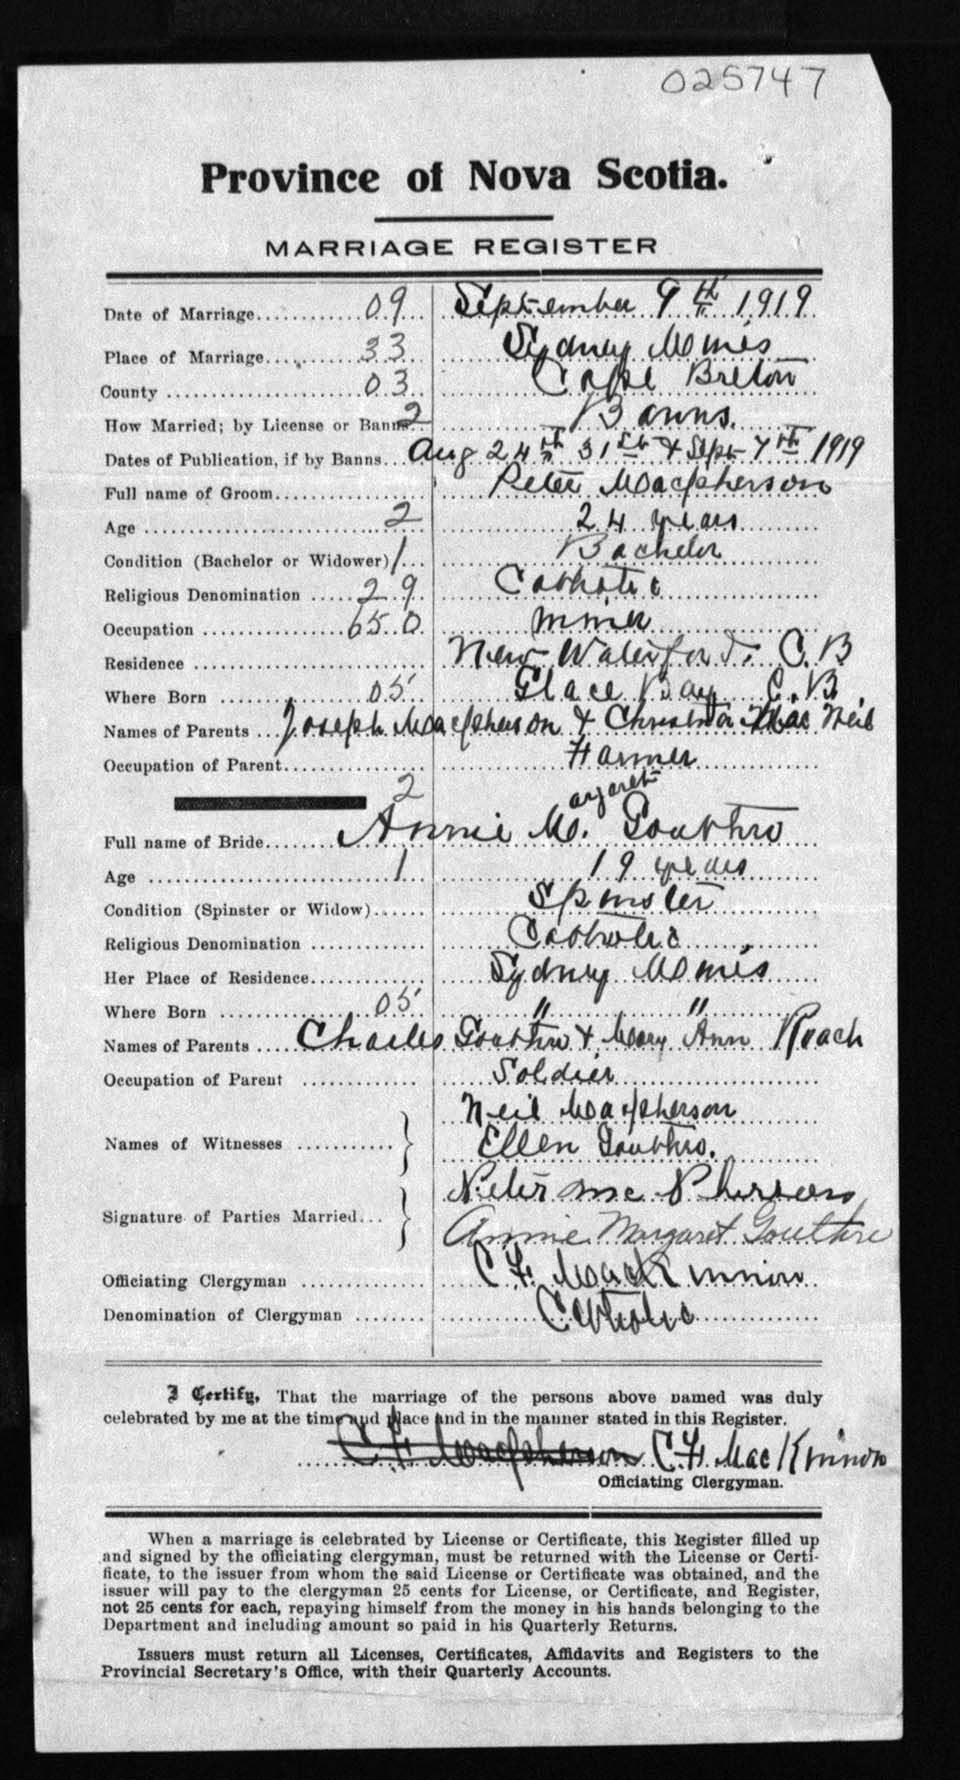 025747
Province of Nova Scotia.
MARRIAGE REGISTER
Date of Marriage 09 September 9th 1919
Place of Marriage 33 Sydney Mines
County 03 Cape Breton
How Married; by License or Banns 2 Banns.
Dates of Publication, if by Banns Aug 24th 31st & Sept 7th 1919
Full name of Groom Peter MacPherson
Age 2 24 years
Condition (Bachelor or Widower) 1 Bachelor
Religious Denomination 29 Catholic
Occupation 650 Miner
Residence New Waterford. C.B
Where Born 05 Glace Bay C.B.
Names of Parents Joseph MacPherson & Christina MacNeil
Occupation of Parent Farmer
2 argaret
Full name of Bride Annie M. Gouthro
Age 1 19 years
Condition (Spinster or Widow) Spinster
Religious Denomination Catholic
Her Place of Residence Sydney Mines
Where Born 05 " "
Names of Parents Charles Gouthro & Mary Ann Roach
Occupation of Parent Soldier
Neil MacPherson
Names of Witnesses
Ellen Gouthro.
Peter McPherson
Signature of Parties Married
Annie Margaret Gouthro
Officiating Clergyman C F. MacKinnon
Denomination of Clergyman Catholic
I Certify, That the marriage of the persons above named was duly
celebrated by me at the time and place and in the manner stated in this Register.
C F. MacPherson C.F. MacKinnon
Officiating Clergyman.
When a marriage is celebrated by License or Certificate, this Register filled up
and signed by the officiating clergyman, must be returned with the License or Certi-
ficate, to the issuer from whom the said License or Certificate was obtained, and the
issuer will pay to the clergyman 25 cents for License, or Certificate, and Register,
not 25 cents for each, repaying himself from the money in his hands belonging to the
Department and including amount so paid in his Quarterly Returns.
Issuers must return all Licenses, Certificates, Affidavits and Registers to the
Provincial Secretary's Office, with their Quarterly Accounts.